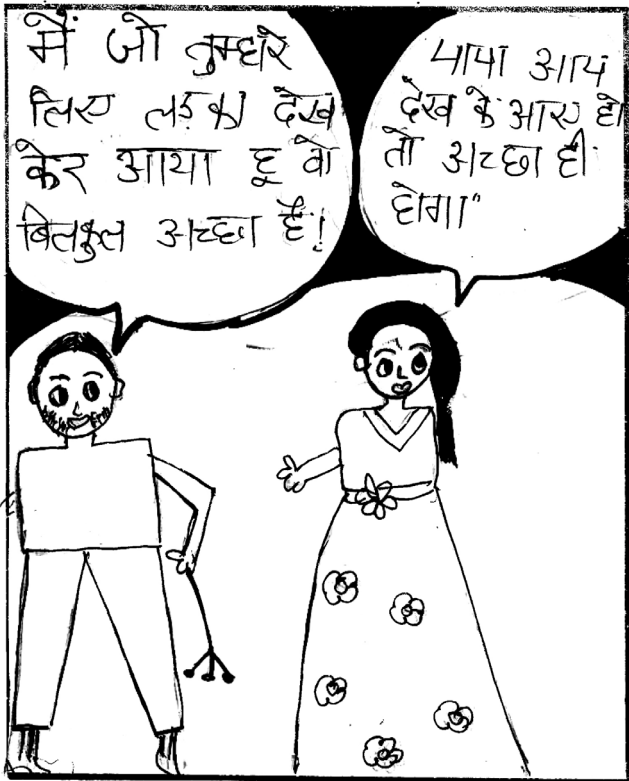 मैं जो तुम्हारे
लिए लड़का देख
कर आया हू वो
बिलकुल अच्छा है!
पापा आप
देख के आए हो
तो अच्छा ही
होगा"